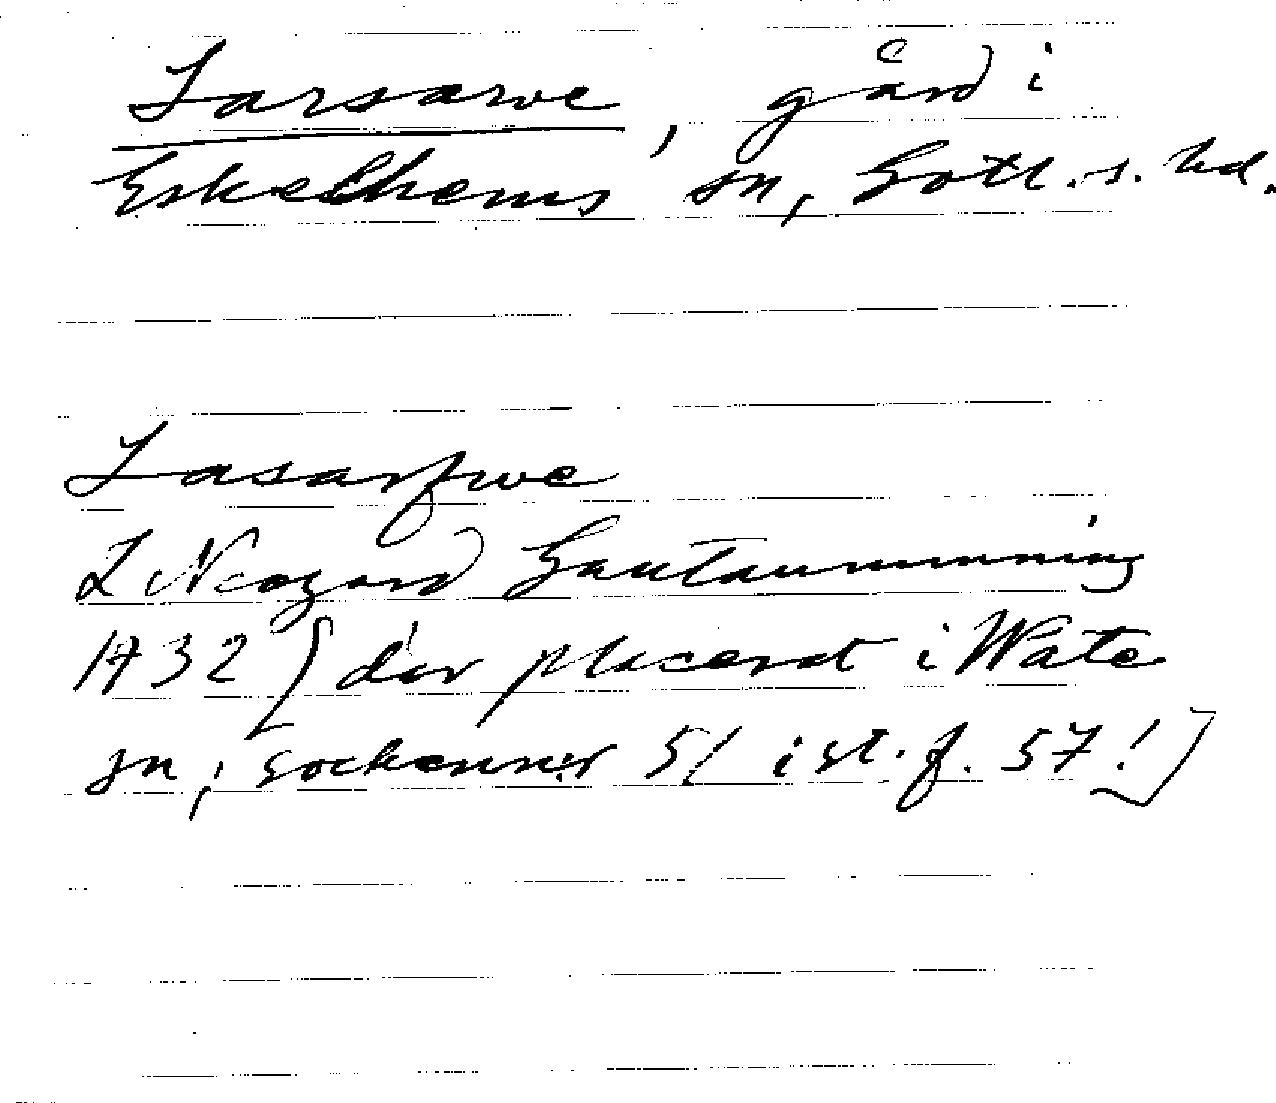 Larsarve, gård i
Eskelhems sn, Gotl. s. hd.
Lasarfwe
L Neogard Gautauminning
1732 [där placerat i Wate
sn, sockennr 51 i st. f. 57!]